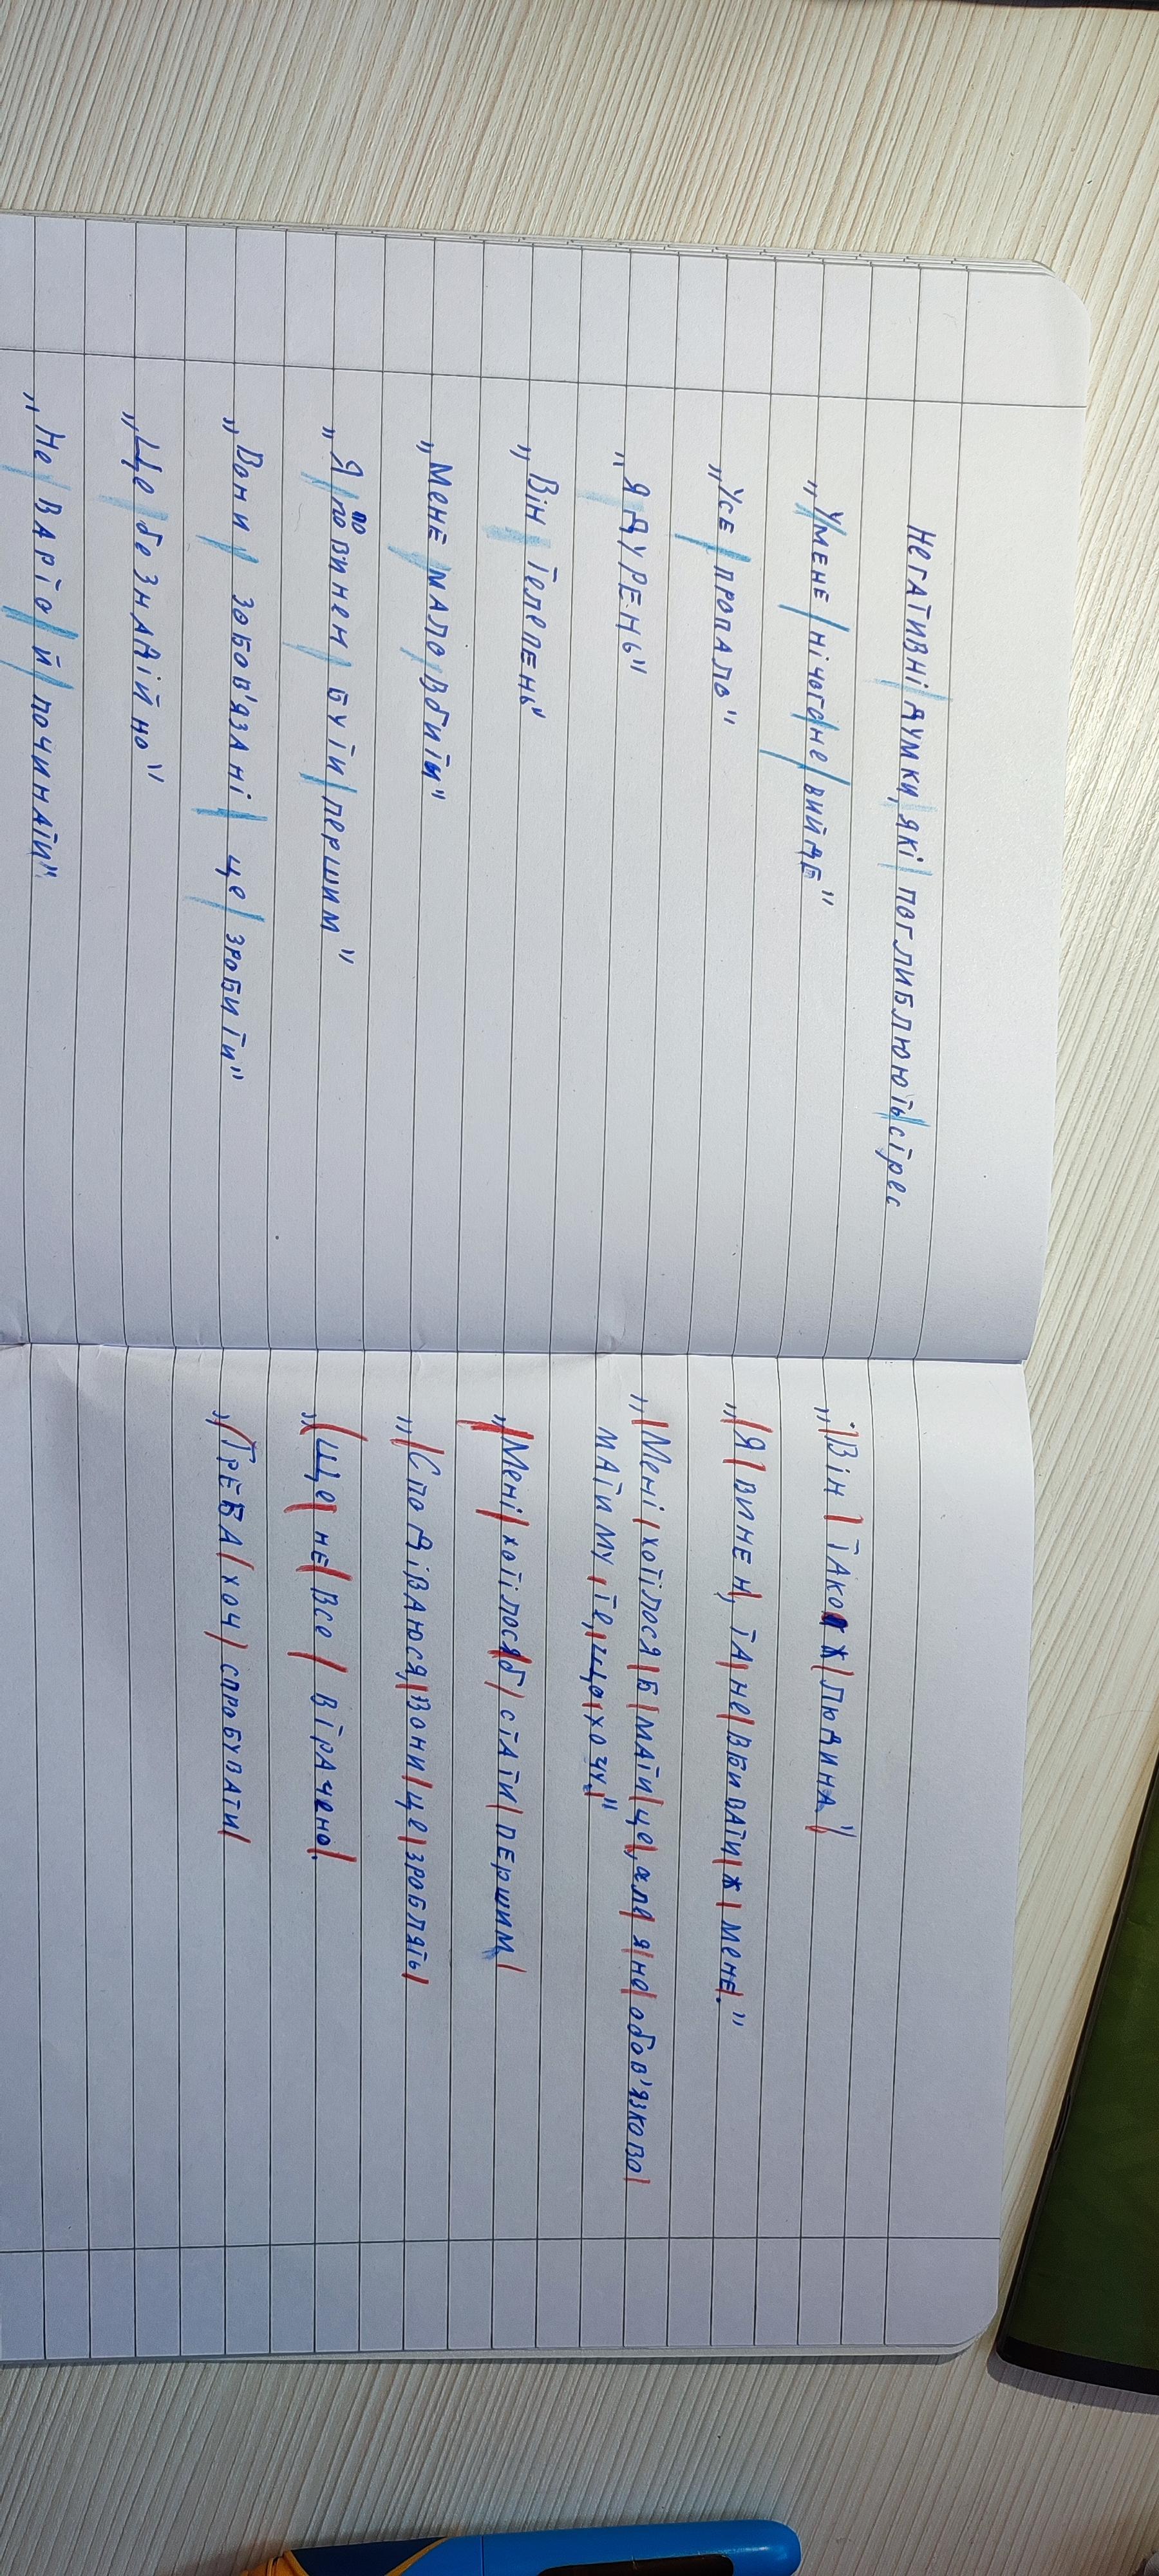 Негативні думки, які поглиблюють стрес
„У мене нічого не вийде"
„Усе пропало"
„Я дурень"
„Він телепень"
„Мене мало вбити"
„Я повинен бути першим"
„Вони зобов'язані це зробити"
„Це безнадійно"
„Не варто й починати"
„Він також людина"
„Я винен, та не вбивати ж мене."
„Мені хотілося б мати це, але я не обов'язково
матиму те, що хочу."
„Мені хотілося б стати першим
„Сподіваюся, вони це зроблять
„Ще не все втрачено.
„Треба хоч спробувати